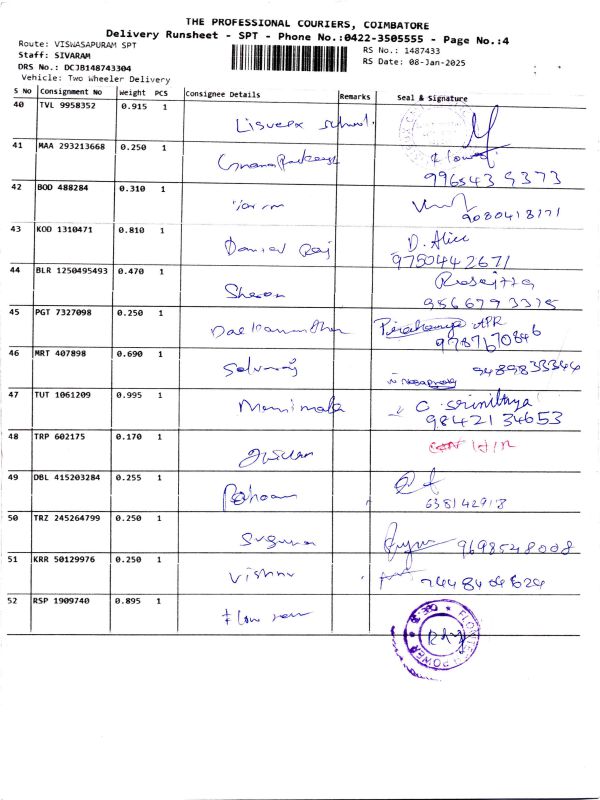 THE PROFESSIONAL COURIERS, COIMBATORE
Delivery Runsheet - SPT - Phone No.:0422-3505555 - Page No.:4
Route: VISWASAPURAM SPT
RS No.: 1487433
Staff: SIVARAM
RS Date: 08-Jan-2025
DRS No.: DCJB148743304
Vehicle: Two Wheeler Delivery
S No Consignment No Weight PCS Consignee Details Remarks Seal & Signature
40 TVL 9958352 0.915 1
41 MAA 293213668 0.250 1
42 BOD 488284 0.310 1
9080418171
43 KOD 1310471 0.810 1 Daniel Raj D. Alice
9750442671
44 BLR 1250495493 0.470 1 Sharon
45 PGT 7327098 0.250 1
9787670846
46 MRT 407898 0.690 1 Selvaraj 94898 33344
47 TUT 1061209 0.995 1 Manimala C. Srinithya
9842134653
48 TRP 602175 0.170 1
49 DBL 415203284 0.255 1
50 TRZ 245264799 0.250 1 Suguna 9698548008
51 KRR 50129976 0.250 1 Vishnu
52 RSP 1909740 0.895 1
FLOWTECH POWER